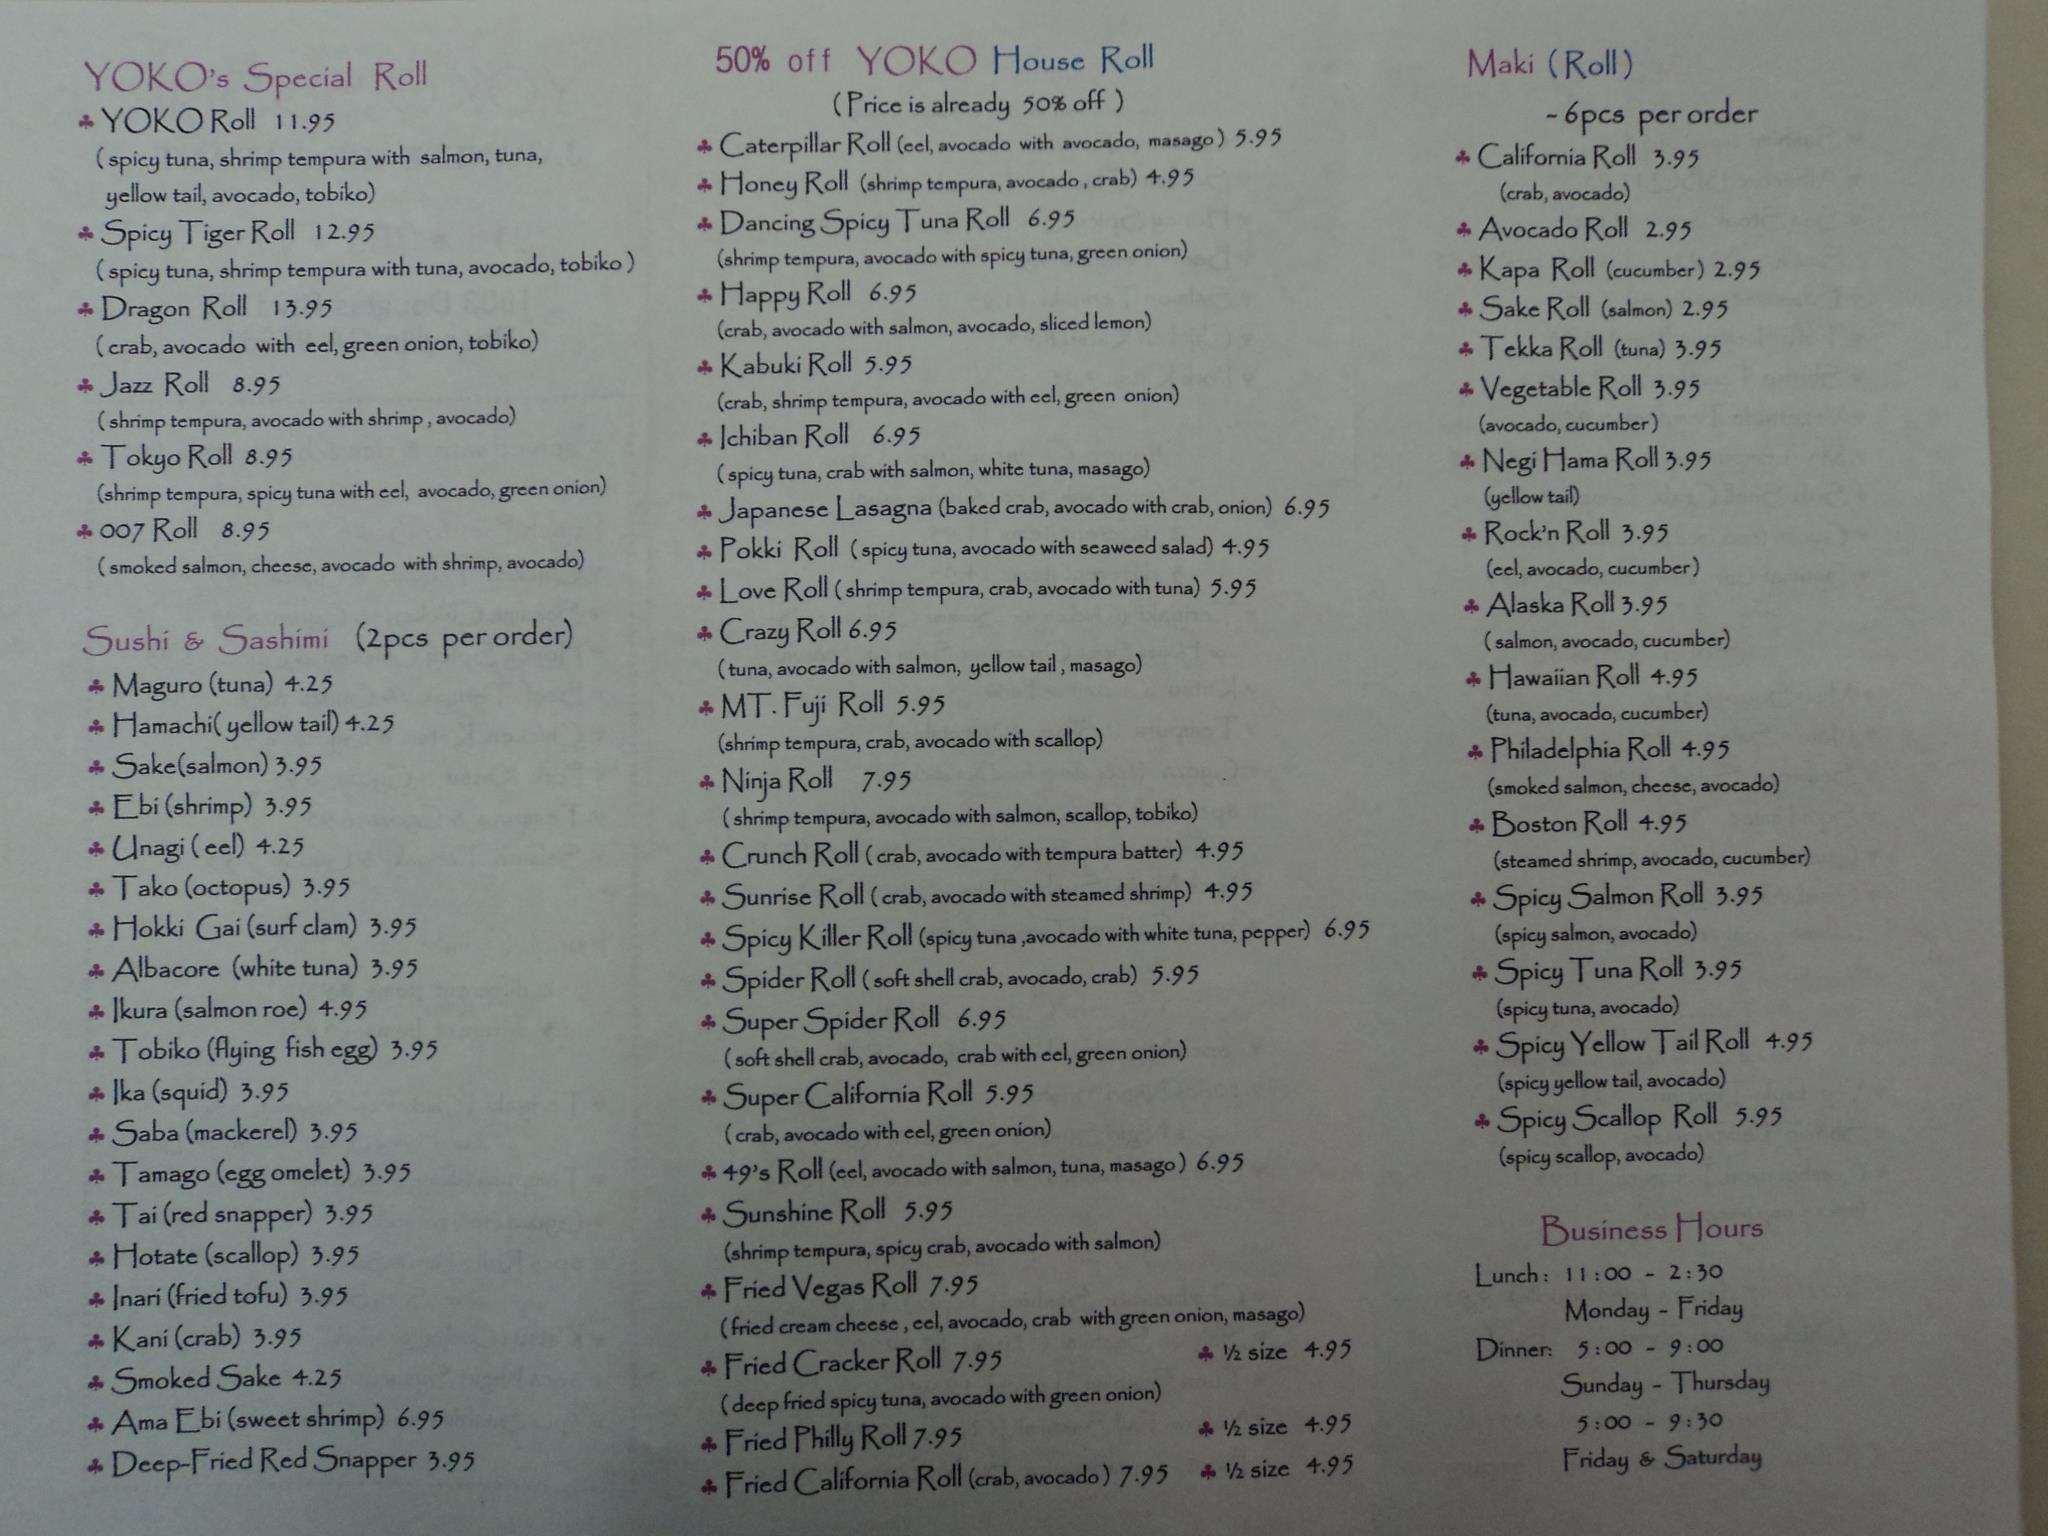 YOKO's Special Roll
♣ YOKO Roll 11.95
(spicy tuna, shrimp tempura with salmon, tuna,
yellow tail, avocado, tobiko)
♣ Spicy Tiger Roll 12.95
(spicy tuna, shrimp tempura with tuna, avocado, tobiko)
♣ Dragon Roll 13.95
(crab, avocado with eel, green onion, tobiko)
♣ Jazz Roll 8.95
(shrimp tempura, avocado with shrimp, avocado)
♣ Tokyo Roll 8.95
(shrimp tempura, spicy tuna with eel, avocado, green onion)
♣ 007 Roll 8.95
(smoked salmon, cheese, avocado with shrimp, avocado)
Sushi & Sashimi (2pcs per order)
♣ Maguro (tuna) 4.25
♣ Hamachi(yellow tail) 4.25
♣ Sake(salmon) 3.95
♣ Ebi (shrimp) 3.95
♣ Unagi (eel) 4.25
♣ Tako (octopus) 3.95
♣ Hokki Gai (surf clam) 3.95
♣ Albacore (white tuna) 3.95
♣ Ikura (salmon roe) 4.95
♣ Tobiko (flying fish egg) 3.95
♣ Ika (squid) 3.95
♣ Saba (mackerel) 3.95
♣ Tamago (egg omelet) 3.95
♣ Tai (red snapper) 3.95
♣ Hotate (scallop) 3.95
♣ Inari (fried tofu) 3.95
♣ Kani (crab) 3.95
♣ Smoked Sake 4.25
♣ Ama Ebi (sweet shrimp) 6.95
♣ Deep-Fried Red Snapper 3.95
50% off YOKO House Roll
(Price is already 50% off)
♣ Caterpillar Roll (eel, avocado with avocado, masago) 5.95
♣ Honey Roll (shrimp tempura, avocado, crab) 4.95
♣ Dancing Spicy Tuna Roll 6.95
(shrimp tempura, avocado with spicy tuna, green onion)
♣ Happy Roll 6.95
(crab, avocado with salmon, avocado, sliced lemon)
♣ Kabuki Roll 5.95
(crab, shrimp tempura, avocado with eel, green onion)
♣ Ichiban Roll 6.95
(spicy tuna, crab with salmon, white tuna, masago)
♣ Japanese Lasagna (baked crab, avocado with crab, onion) 6.95
♣ Pokki Roll (spicy tuna, avocado with seaweed salad) 4.95
♣ Love Roll (shrimp tempura, crab, avocado with tuna) 5.95
♣ Crazy Roll 6.95
(tuna, avocado with salmon, yellow tail, masago)
♣ MT. Fuji Roll 5.95
(shrimp tempura, crab, avocado with scallop)
♣ Ninja Roll 7.95
(shrimp tempura, avocado with salmon, scallop, tobiko)
♣ Crunch Roll (crab, avocado with tempura batter) 4.95
♣ Sunrise Roll (crab, avocado with steamed shrimp) 4.95
♣ Spicy Killer Roll (spicy tuna ,avocado with white tuna, pepper) 6.95
♣ Spider Roll (soft shell crab, avocado, crab) 5.95
♣ Super Spider Roll 6.95
(soft shell crab, avocado, crab with eel, green onion)
♣ Super California Roll 5.95
(crab, avocado with eel, green onion)
♣ 49's Roll (eel, avocado with salmon, tuna, masago) 6.95
♣ Sunshine Roll 5.95
(shrimp tempura, spicy crab, avocado with salmon)
♣ Fried Vegas Roll 7.95
(fried cream cheese, eel, avocado, crab with green onion, masago)
♣ Fried Cracker Roll 7.95 ♣ ½ size 4.95
(deep fried spicy tuna, avocado with green onion)
♣ Fried Philly Roll 7.95 ♣ ½ size 4.95
♣ Fried California Roll (crab, avocado) 7.95 ♣ ½ size 4.95
Maki (Roll)
- 6pcs per order
♣ California Roll 3.95
(crab, avocado)
♣ Avocado Roll 2.95
♣ Kapa Roll (cucumber) 2.95
♣ Sake Roll (salmon) 2.95
♣ Tekka Roll (tuna) 3.95
♣ Vegetable Roll 3.95
(avocado, cucumber)
♣ Negi Hama Roll 3.95
(yellow tail)
♣ Rock'n Roll 3.95
(eel, avocado, cucumber)
♣ Alaska Roll 3.95
(salmon, avocado, cucumber)
♣ Hawaiian Roll 4.95
(tuna, avocado, cucumber)
♣ Philadelphia Roll 4.95
(smoked salmon, cheese, avocado)
♣ Boston Roll 4.95
(steamed shrimp, avocado, cucumber)
♣ Spicy Salmon Roll 3.95
(spicy salmon, avocado)
♣ Spicy Tuna Roll 3.95
(spicy tuna, avocado)
♣ Spicy Yellow Tail Roll 4.95
(spicy yellow tail, avocado)
♣ Spicy Scallop Roll 5.95
(spicy scallop, avocado)
Business Hours
Lunch: 11:00 - 2:30
Monday - Friday
Dinner: 5:00 - 9:00
Sunday - Thursday
5:00 - 9:30
Friday & Saturday